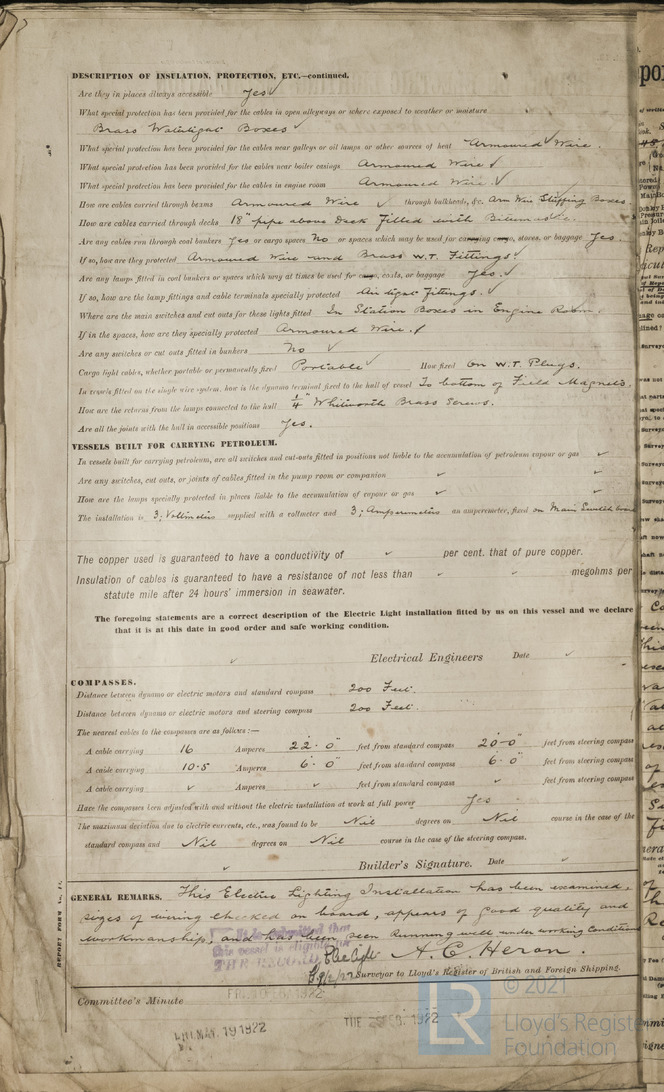 DESCRIPTION OF INSULATION, PROTECTION, ETC.—continued.
Are they in places always accessible Yes ✓
What special protection has been provided for the cables in open alleyways or where exposed to weather or moisture
Brass Watertight Boxes ✓
What special protection has been provided for the cables near galleys or oil lamps or other sources of heat Armoured Wire.
What special protection has been provided for the cables near boiler casings Armoured Wire ✓
What special protection has been provided for the cables in engine room Armoured Wire. ✓
How are cables carried through beams Armoured Wire ✓ through bulkheads, &c. Arm Wire Stuffing Boxes
How are cables carried through decks 18" pipe above Deck Filled with
Are any cables run through coal bunkers Yes or cargo spaces No or spaces which may be used for carrying cargo, stores, or baggage Yes.
If so, how are they protected Armoured Wire and Brass W.T. Fittings ✓
Are any lamps fitted in coal bunkers or spaces which may at times be used for cargo, coals, or baggage Yes. ✓
If so, how are the lamp fittings and cable terminals specially protected Air tight Fittings. ✓
Where are the main switches and cut outs for these lights fitted In Station Boxes in Engine Room.
If in the spaces, how are they specially protected Armoured Wire. ✓
Are any switches or cut outs fitted in bunkers No ✓
Cargo light cables, whether portable or permanently fixed Portable ✓ How fixed On W.T. Plugs.
In vessels fitted on the single wire system, how is the dynamo terminal fixed to the hull of vessel To bottom of Field Magnets.
How are the returns from the lamps connected to the hull ¼" Whitworth Brass Screws.
Are all the joints with the hull in accessible positions Yes.
VESSELS BUILT FOR CARRYING PETROLEUM.
In vessels built for carrying petroleum, are all switches and cut-outs fitted in positions not liable to the accumulation of petroleum vapour or gas ✓
Are any switches, cut outs, or joints of cables fitted in the pump room or companion ✓ ✓
How are the lamps specially protected in places liable to the accumulation of vapour or gas ✓ ✓
The installation is 3; Voltmeters supplied with a voltmeter and 3; Amperemeters an amperemeter, fixed on Main Switch board
The copper used is guaranteed to have a conductivity of ✓ per cent. that of pure copper.
Insulation of cables is guaranteed to have a resistance of not less than ✓ ✓ megohms per
statute mile after 24 hours' immersion in seawater.
The foregoing statements are a correct description of the Electric Light installation fitted by us on this vessel and we declare
that it is at this date in good order and safe working condition.
✓ Electrical Engineers Date ✓
COMPASSES.
Distance between dynamo or electric motors and standard compass 200 Feet.
Distance between dynamo or electric motors and steering compass 200 Feet.
The nearest cables to the compasses are as follows:—
A cable carrying 16 Amperes 22'-0" feet from standard compass 20'-0" feet from steering compass
A cable carrying 10.5 Amperes 6'-0" feet from standard compass 6'-0" feet from steering compass
A cable carrying ✓ Amperes ✓ feet from standard compass ✓ feet from steering compass
Have the compasses been adjusted with and without the electric installation at work at full power Yes
The maximum deviation due to electric currents, etc., was found to be Nil degrees on Nil course in the case of the
standard compass and Nil degrees on Nil course in the case of the steering compass.
✓ Builder's Signature. Date ✓
GENERAL REMARKS. This Electric Lighting Installation has been examined.
sizes of wiring checked on board, appears of good quality and
workmanship, and has been seen running well under working Conditions
It is submitted that
this vessel is eligible for
THE RECORD
Elec Light
A. C. Heron.
Surveyor to Lloyd's Register of British and Foreign Shipping.
REPORT FORM No.
Committee's Minute
FRI.
1922
FRI. MAY. 19 1922
TUE. FEB. 1922
LR
© 2021
Lloyd's Register
Foundation